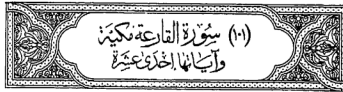 (١٠١) سُورَة القَارعَة مَكيَّة
وَآيَانهَا إِحْدَى عَشَرَة